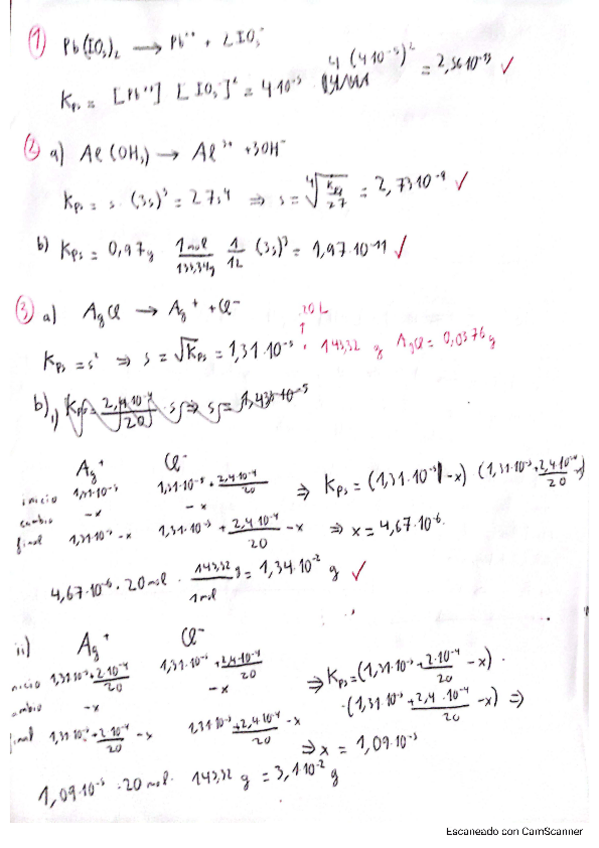 1) Pb(IO3)2 → Pb++ + 2IO3-
Kps = [Pb++] [IO3-]² = 4·10⁻⁵ 4(4·10⁻⁵)² = 2,56·10⁻¹³ ✓
2) a) Al(OH3) → Al³⁺ + 3OH⁻
Kps = s · (3s)³ = 27s4 ⇒ s = ⁴√(Kps/27) = 2,73·10⁻⁹ ✓
b) Kps = 0,97g 1mol/133,34g 1/12 (3s)³ = 1,97·10⁻¹¹ ✓
3) a) AgCl → Ag⁺ + Cl⁻ 20L
Kps = s² ⇒ s = √Kps = 1,31·10⁻⁵ · 143,32 g AgCl = 0,0376g
b) i)
Ag⁺ Cl⁻
inicio 1,31·10⁻⁵ 1,31·10⁻⁵ + 2,4·10⁻⁴/20 ⇒ Kps = (1,31·10⁻⁵ - x) (1,31·10⁻⁵ + 2,4·10⁻⁴/20 - x)
cambio -x -x
final 1,31·10⁻⁵ - x 1,31·10⁻⁵ + 2,4·10⁻⁴/20 - x ⇒ x = 4,67·10⁻⁶.
4,67·10⁻⁶ · 20 mol · 143,32/1mol g = 1,34·10⁻² g ✓
ii) Ag⁺ Cl⁻
nicio 1,31·10⁻⁵ + 2·10⁻⁴/20 1,31·10⁻⁵ + 2,4·10⁻⁴/20 ⇒ Kps = (1,31·10⁻⁵ + 2·10⁻⁴/20 - x) ·
ambio -x -x · (1,31·10⁻⁵ + 2,4·10⁻⁴/20 - x) ⇒
final 1,31·10⁻⁵ + 2·10⁻⁴/20 - x 1,31·10⁻⁵ + 2,4·10⁻⁴/20 - x ⇒ x = 1,09·10⁻⁵
1,09·10⁻⁵ · 20 mol · 143,32 g = 3,1·10⁻² g
Escaneado con CamScanner